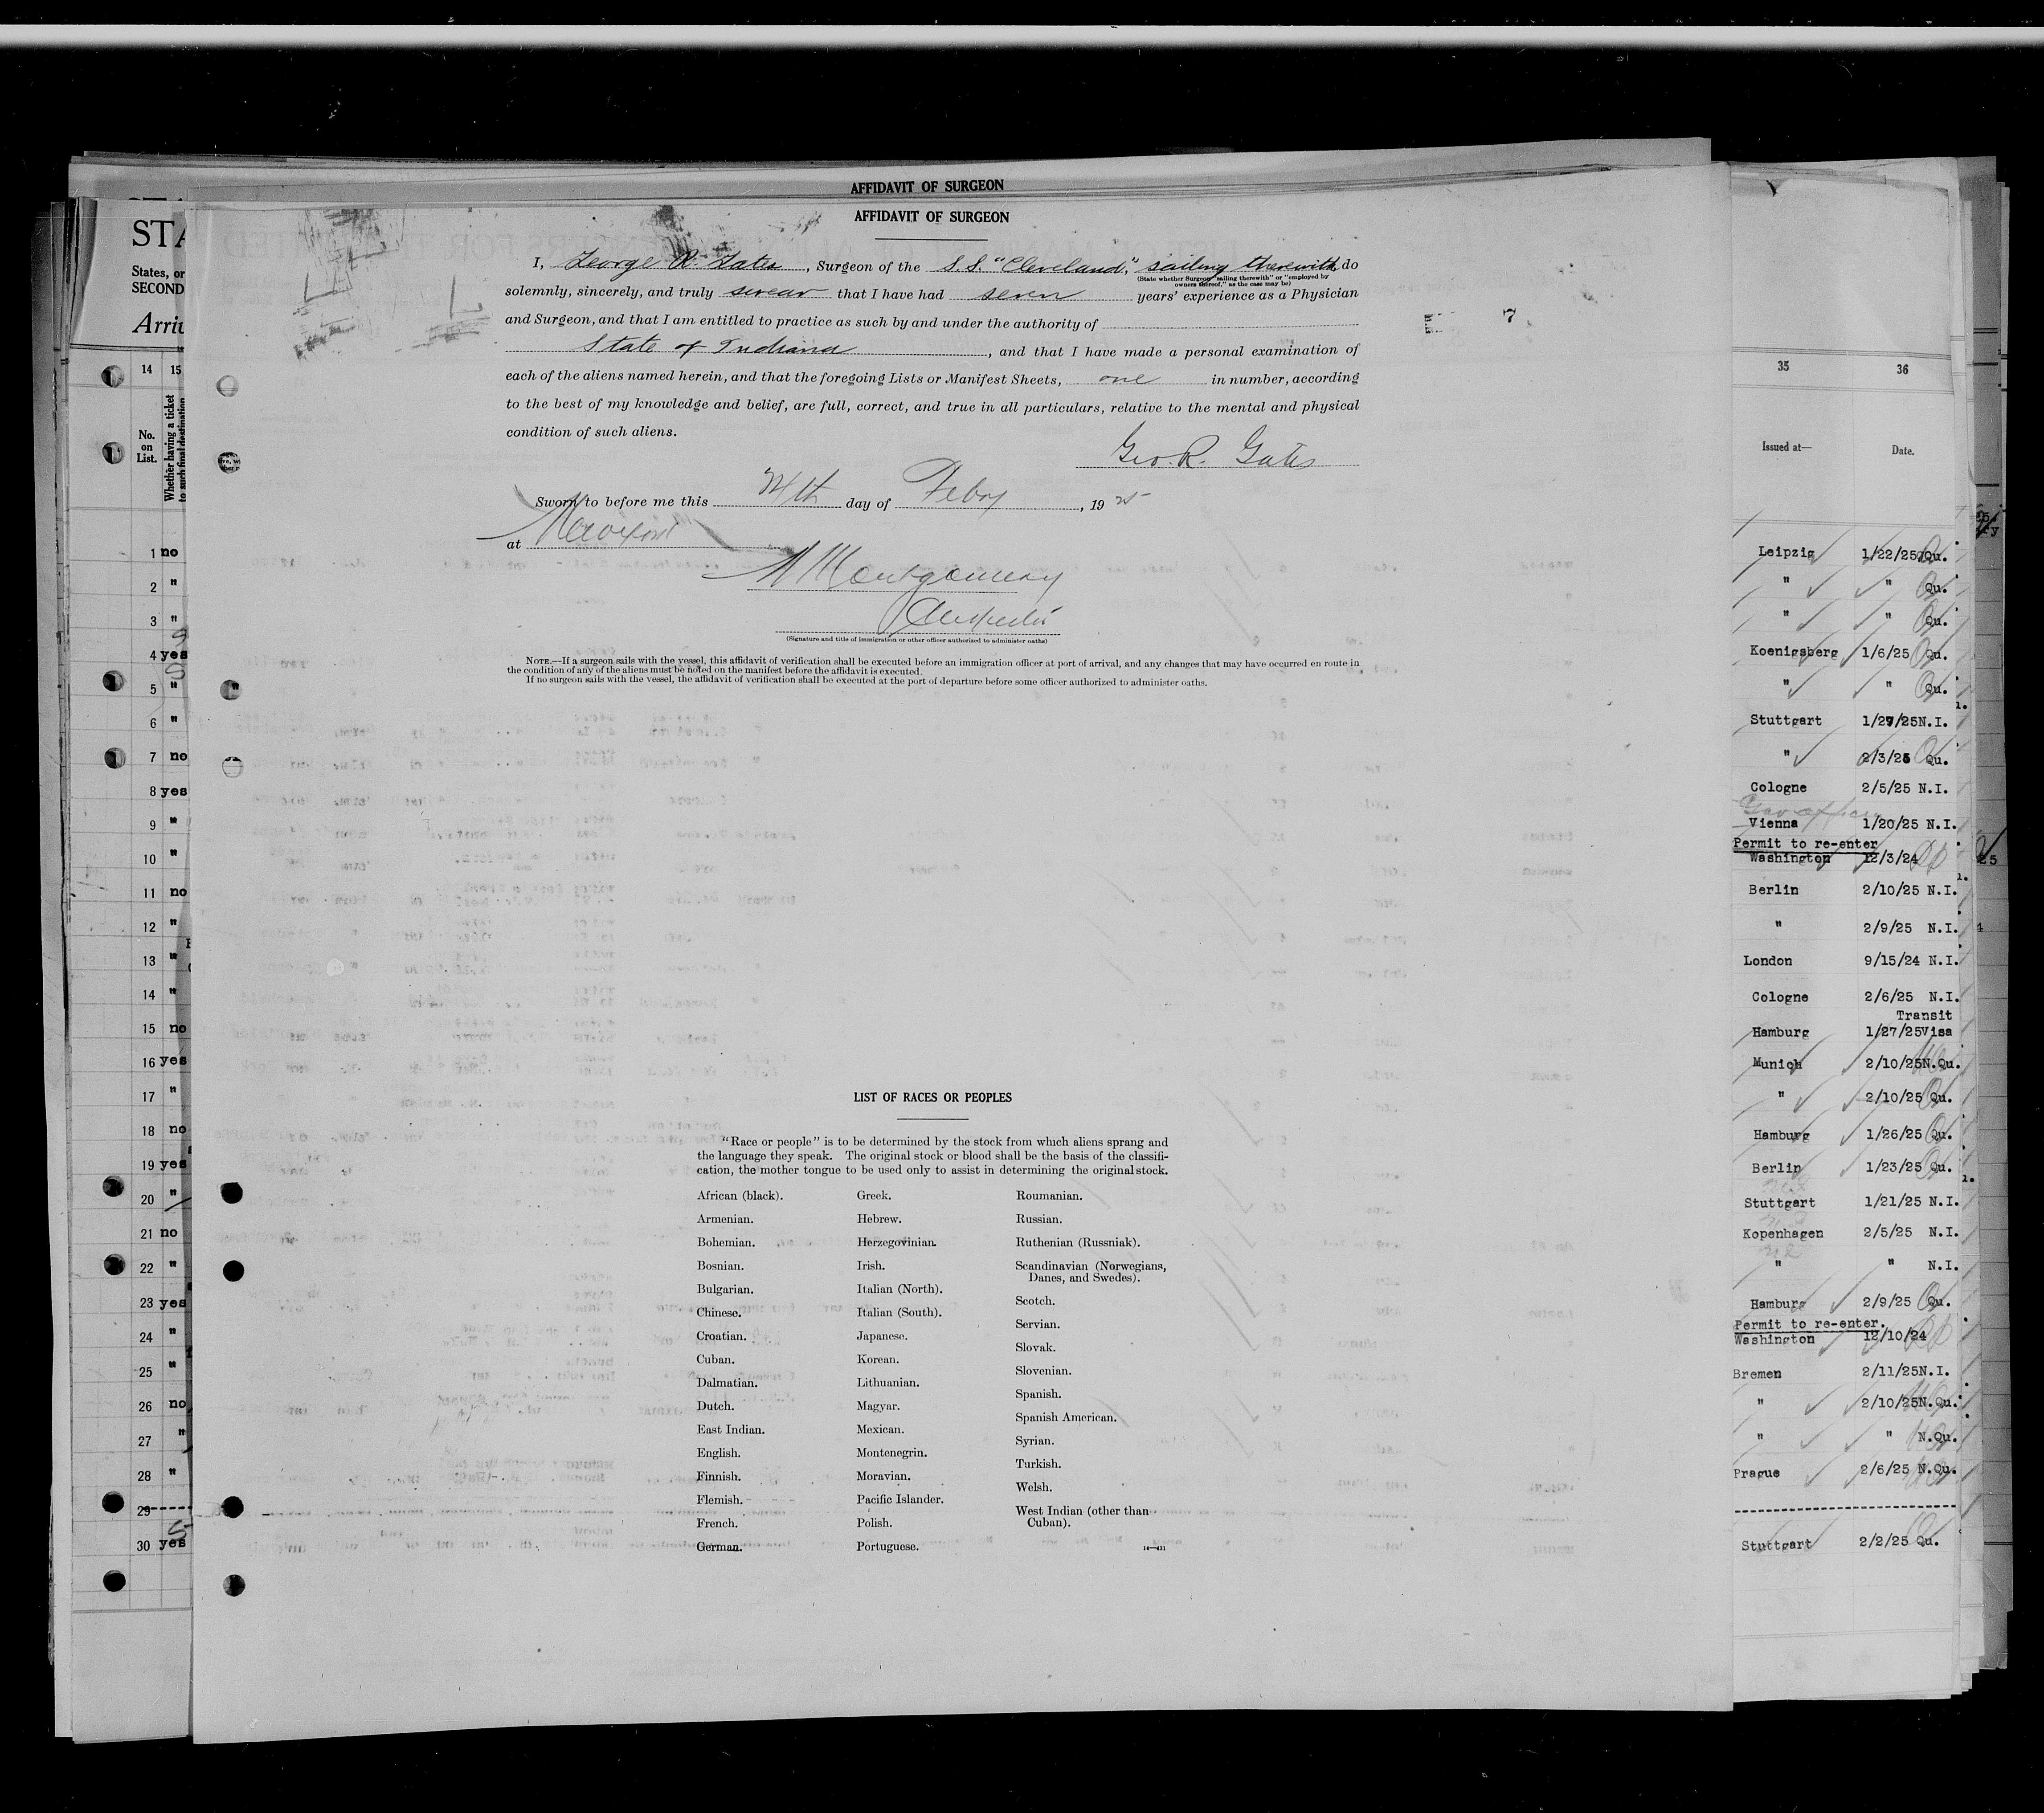 AFFIDAVIT OF SURGEON
AFFIDAVIT OF SURGEON
I, George R. Gates, Surgeon of the S.S. "Cleveland", sailing therewith, do
(State whether Surgeon "sailing therewith" or "employed by
owners thereof," as the case may be)
solemnly, sincerely, and truly swear that I have had seven years' experience as a Physician
and Surgeon, and that I am entitled to practice as such by and under the authority of
State of Indiana, and that I have made a personal examination of
each of the aliens named herein, and that the foregoing Lists or Manifest Sheets, one in number, according
to the best of my knowledge and belief, are full, correct, and true in all particulars, relative to the mental and physical
condition of such aliens.
Geo. R. Gates
Sworn to before me this 24th day of Feby, 1925
at New York
Montgomery
(Signature and title of immigration or other officer authorized to administer oaths)
NOTE.—If a surgeon sails with the vessel, this affidavit of verification shall be executed before an immigration officer at port of arrival, and any changes that may have occurred en route in
the condition of any of the aliens must be noted on the manifest before the affidavit is executed.
If no surgeon sails with the vessel, the affidavit of verification shall be executed at the port of departure before some officer authorized to administer oaths.
7
LIST OF RACES OR PEOPLES
"Race or people" is to be determined by the stock from which aliens sprang and
the language they speak. The original stock or blood shall be the basis of the classifi-
cation, the mother tongue to be used only to assist in determining the original stock.
African (black).
Armenian.
Bohemian.
Bosnian.
Bulgarian.
Chinese.
Croatian.
Cuban.
Dalmatian.
Dutch.
East Indian.
English.
Finnish.
Flemish.
French.
German.
Greek.
Hebrew.
Herzegovinian.
Irish.
Italian (North).
Italian (South).
Japanese.
Korean.
Lithuanian.
Magyar.
Mexican.
Montenegrin.
Moravian.
Pacific Islander.
Polish.
Portuguese.
Roumanian.
Russian.
Ruthenian (Russniak).
Scandinavian (Norwegians,
Danes, and Swedes).
Scotch.
Servian.
Slovak.
Slovenian.
Spanish.
Spanish American.
Syrian.
Turkish.
Welsh.
West Indian (other than
Cuban).
STA
States, or
SECOND
Arriv
14 15
No.
on
List.
Whether having a ticket
to such final destination
1 no
2 "
3 "
4 yes
5 "
6 "
7 no
8 yes
9 "
10 "
11 no
12 "
13 "
14 "
15 no
16 yes
17 "
18 no
19 yes
20 "
21 no
22 "
23 yes
24 "
25 "
26 no
27 "
28 "
29
30 yes
35 36
Issued at— Date.
Leipzig 1/22/25 Qu.
" " Qu.
" " Qu.
Koenigsberg 1/6/25 Qu.
" " Qu.
Stuttgart 1/27/25 N.I.
" 2/3/25 Qu.
Cologne 2/5/25 N.I.
Vienna 1/20/25 N.I.
Permit to re-enter
Washington 12/3/24
Berlin 2/10/25 N.I.
" 2/9/25 N.I.
London 9/15/24 N.I.
Cologne 2/6/25 N.I.
Transit
Hamburg 1/27/25 Visa
Munich 2/10/25 N.Qu.
" 2/10/25 Qu.
Hamburg 1/26/25 Qu.
Berlin 1/23/25 Qu.
Stuttgart 1/21/25 N.I.
Kopenhagen 2/5/25 N.I.
" " N.I.
Hamburg 2/9/25 Qu.
Permit to re-enter.
Washington 12/10/24
Bremen 2/11/25 N.I.
" 2/10/25 N.Qu.
" " N.Qu.
Prague 2/6/25 N.Qu.
Stuttgart 2/2/25 Qu.